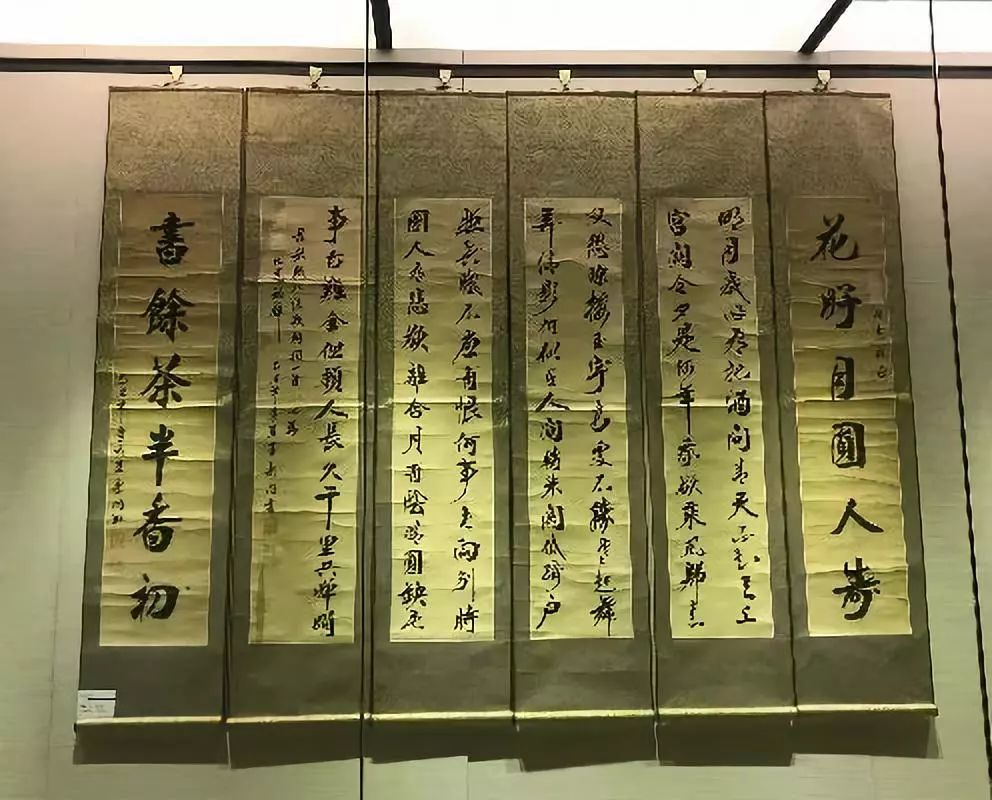 花好月圓人壽
明月幾時有把酒問青天不知天上
宮闕今夕是何年我欲乘風歸去
又恐瓊樓玉宇高處不勝寒起舞
弄清影何似在人間轉朱閣低綺戶
照無眠不應有恨何事長向別時
圓人有悲歡離合月有陰晴圓缺此
事古難全但願人長久千里共嬋娟
書餘茶半香初